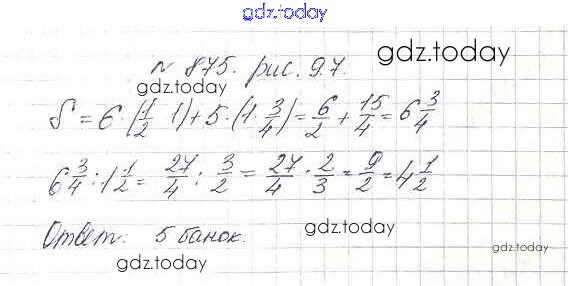 gdz.today
№ 875. рис. 9.7.
gdz.today
gdz.today
S = 6 · (1/2 · 1) + 5 · (1 · 3/4) = 6/2 + 15/4 = 6 3/4
6 3/4 : 1 1/2 = 27/4 : 3/2 = 27/4 · 2/3 = 9/2 = 4 1/2
Ответ: 5 банок.
gdz.today
gdz.today
gdz.today